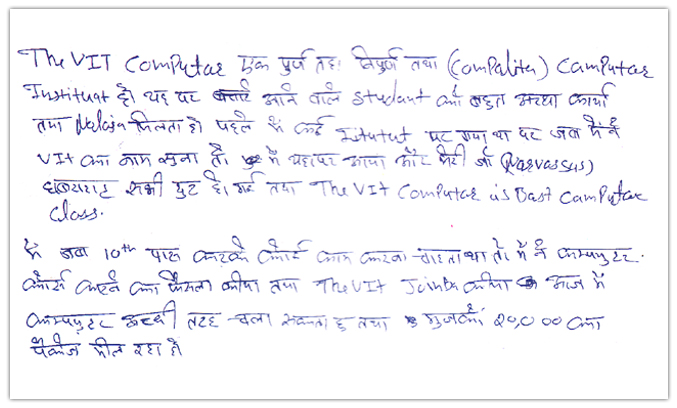 The VIT Computar एक पुर्ण तहा निपुर्ण तथा (Compalita) Camputar
Instituat है। यह पर आने वाले Studant को बहुत अच्छा कार्य
तथा मिलता हो पहले में कई Istutut पर गया था पर जब मैं ने
VIT का नाम सुना तो। में यहापर आया और मेरी जो (Narvassus)
घबराहाट सभी दुर हो गई तथा The VIT Computar is Bast Camputar
Class.
में जब 10th पास करके कोई काम करना चाहता था तो में ने कम्प्युटर
कोर्स करने का फैसला कीया तथा The VIT Join कीया आज में
कम्प्युटर अच्छी तरह चला सकता हु तथा मुजको २०,००० का
पैकेज मील रहा हो